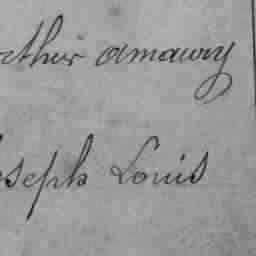 rthur amaury
oseph Louis